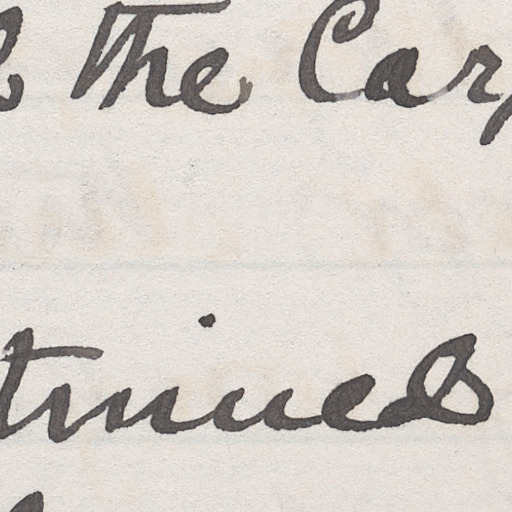 the Car
tinued